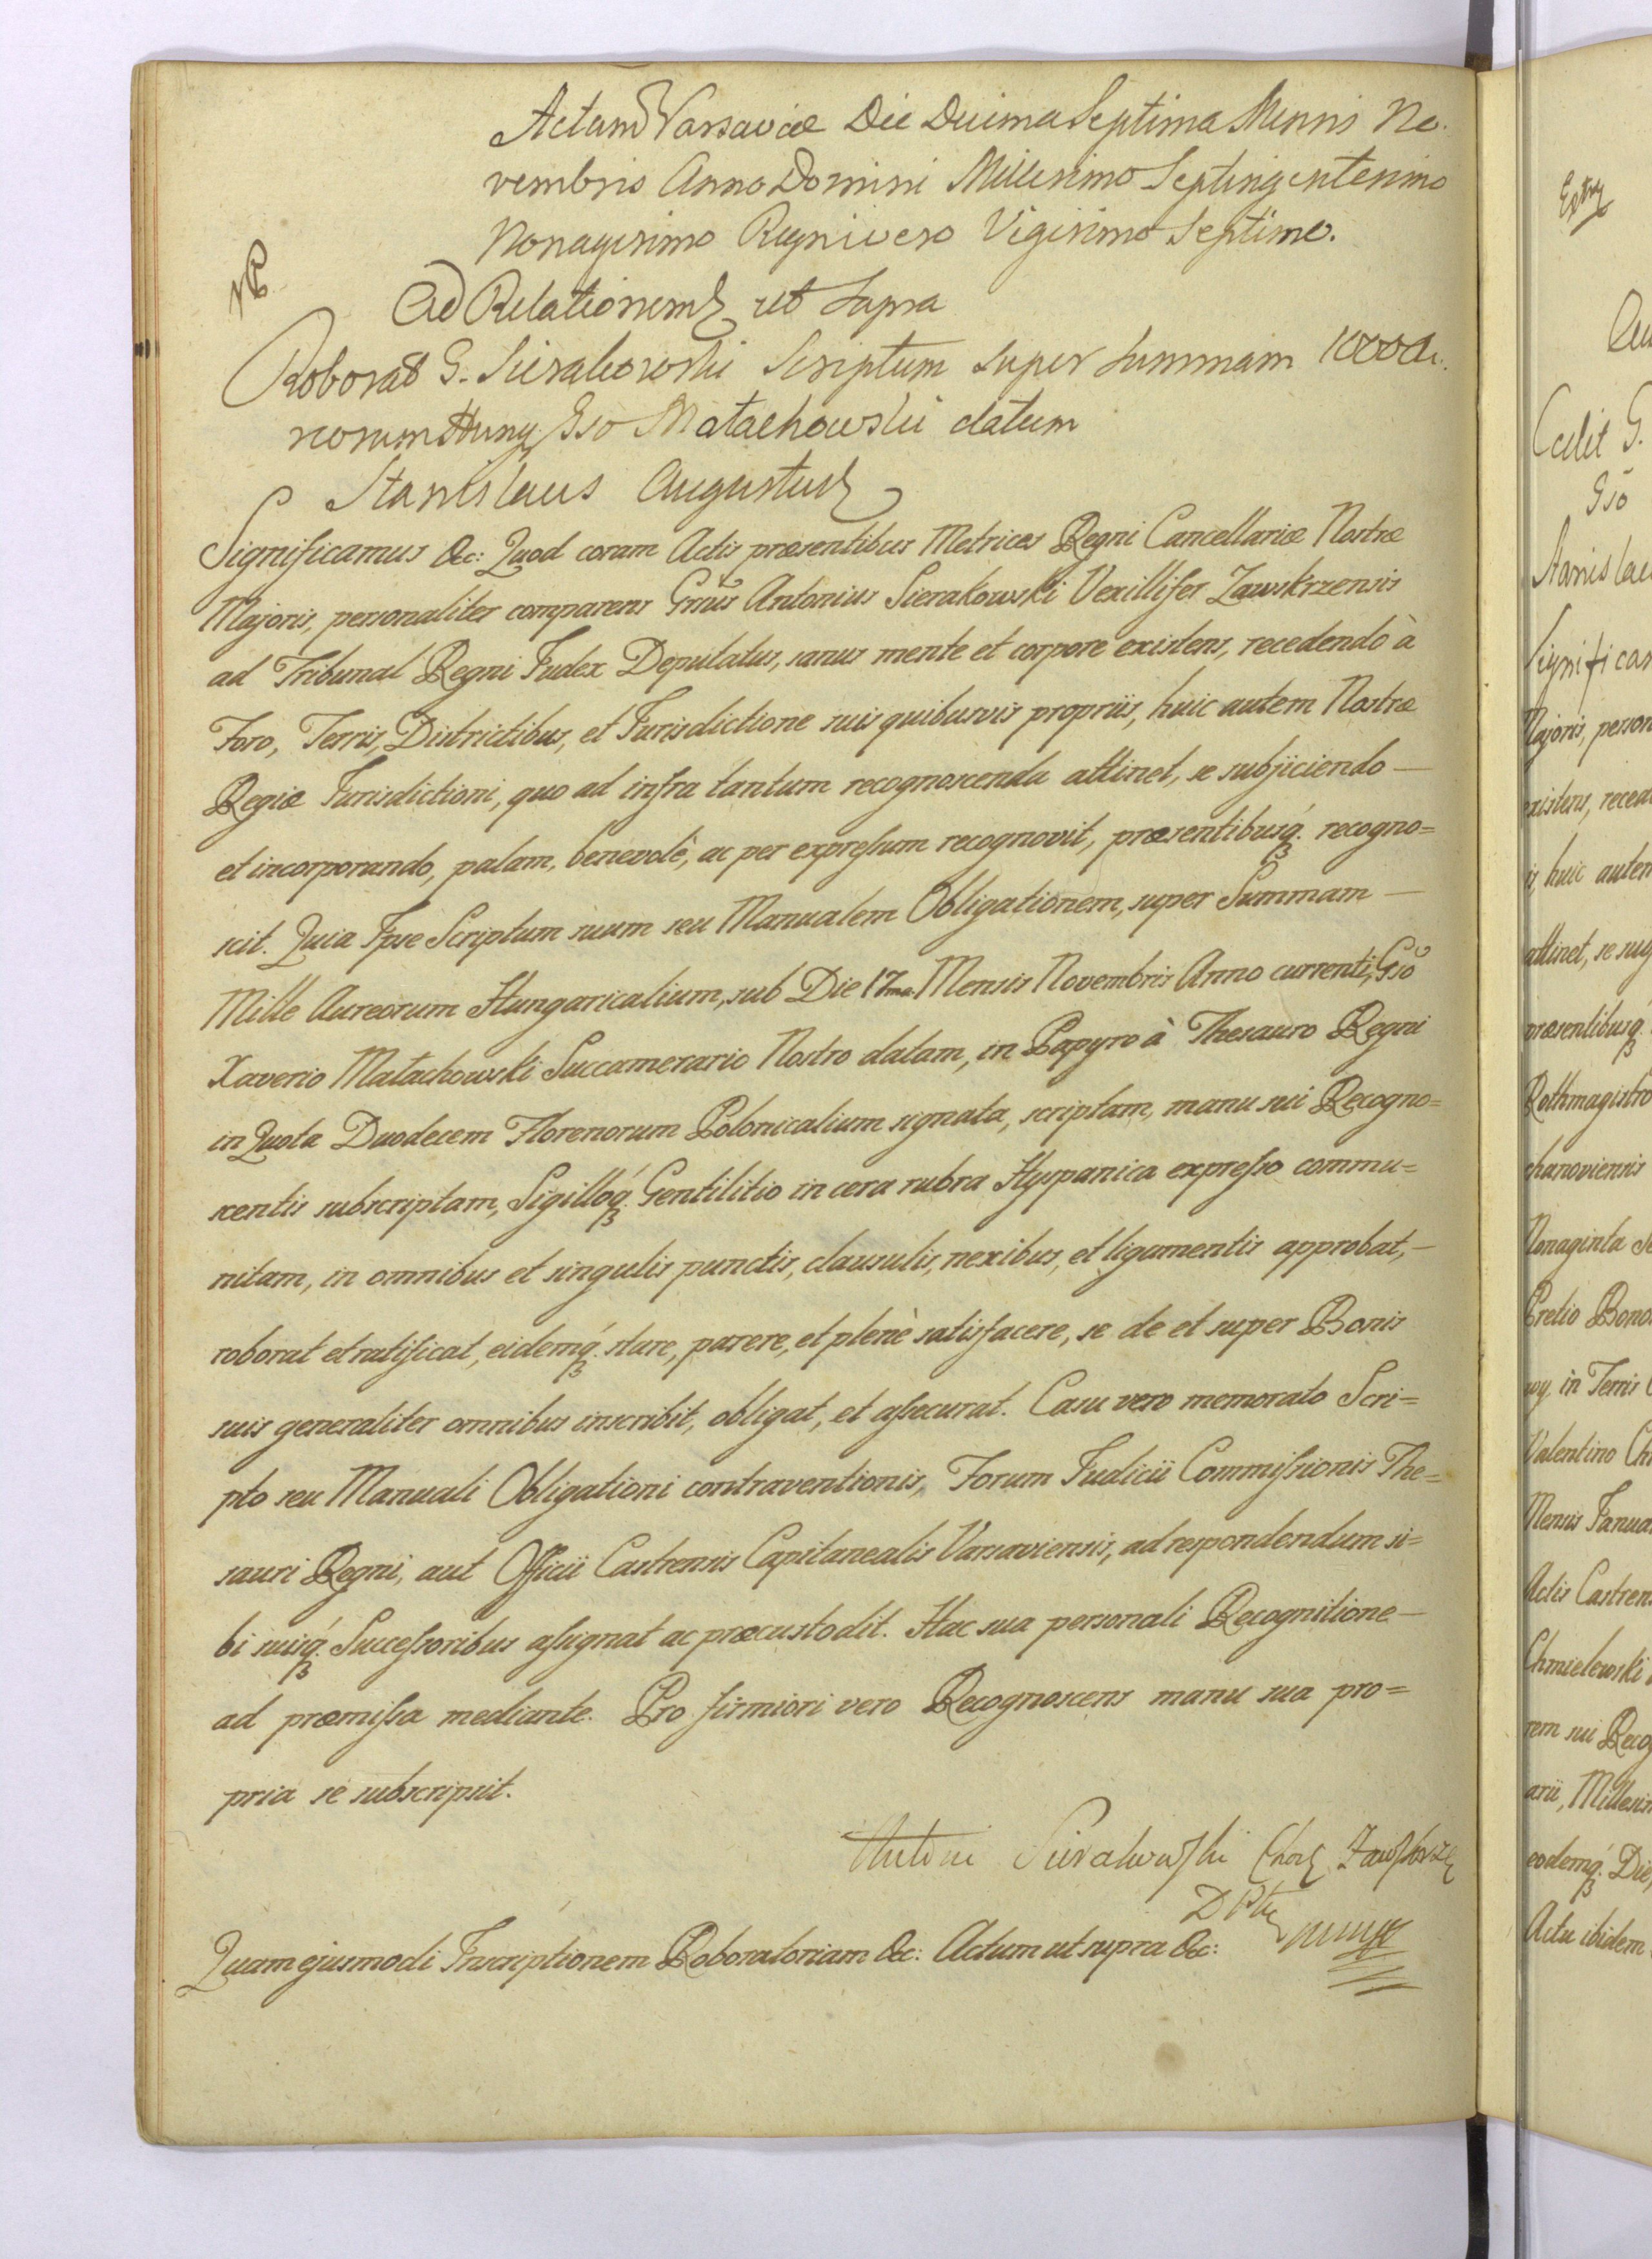 Actum Varsaviæ Die Decima Septima Mensis No-
vembris Anno Domini Millesimo Septingentesimo
Nonagesimo Regni vero Vigesimo Septimo.
Ad Relationem ut supra
Roborat G. Sierakowski Scriptum super summam 1000 Au-
reorum Hung. Gso Małachowski datum
Stanislaus Augustus
Significamus &c: Quod coram Actis præsentibus Metrices Regni Cancellariæ Nostræ
Majoris, personaliter comparens Grsus Antonius Sierakowski Vexillifer Zawskrzensis
ad Tribunal Regni Judex Deputatus, sanus mente et corpore existens, recedendo à
Foro, Terris, Districtibus, et Jurisdictione suis quibusvis propriis, huic autem Nostræ
Regiæ Jurisdictioni, quo ad infra tantum recognoscenda attinet, se subjiciendo —
et incorporando, palam, benevolè, ac per expressum recognovit, præsentibusq. recogno=
scit. Quia Ipse Scriptum suum seu Manualem Obligationem, super Summam —
Mille Aureorum Hungaricalium, sub Die 17ma Mensis Novembris Anno currenti, Gsō
Xaverio Małachowski Succamerario Nostro datam, in Papyro à Thesauro Regni
in Quota Duodecem Florenorum Polonicalium signata, scriptam, manu sui Recogno=
scentis subscriptam, Sigilloq. Gentilitio in cera rubra Hyspanica expresso commu=
nitam, in omnibus et singulis punctis, clausulis, nexibus, et ligamentis approbat, —
roborat et ratificat, eidemq. stare, parere, et plenè satisfacere, se de et super Bonis
suis generaliter omnibus inscribit, obligat, et assecurat. Casu vero memorato Scri=
pto seu Manuali Obligationi contraventionis, Forum Judicii Commissionis The=
sauri Regni, aut Officii Castrensis Capitanealis Varsaviensis, ad respondendum si=
bi suisq. Successoribus assignat ac præcustodit. Hac sua personali Recognitione —
ad præmissa mediante. Pro firmiori vero Recognoscens manu sua pro=
pria se subscripsit.
Antoni Sierakowski Chor. Zawskrz
Quam ejusmodi Inscriptionem Roboratoriam &c: Actum ut supra &c: